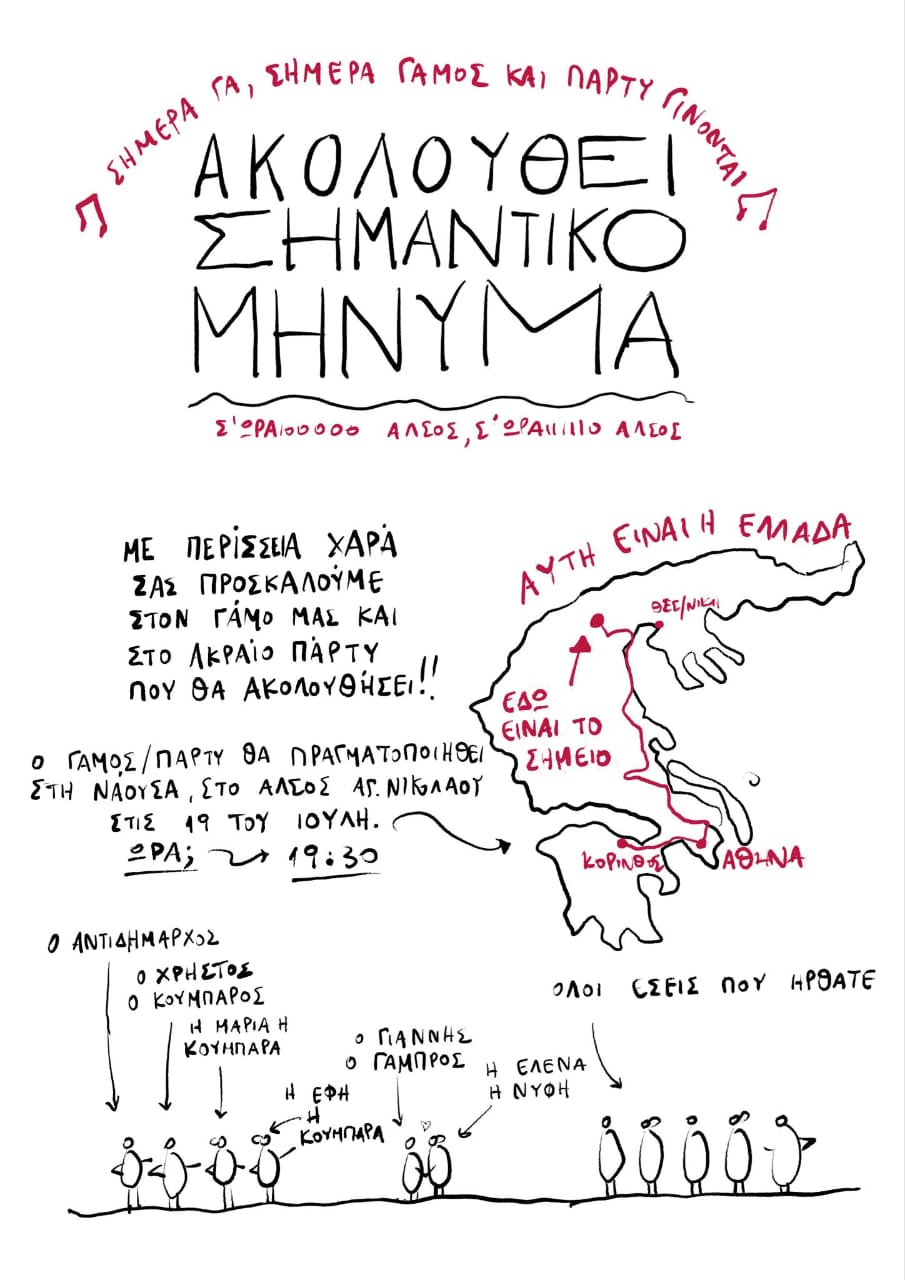 ΣΗΜΕΡΑ ΓΑ, ΣΗΜΕΡΑ ΓΑΜΟΣ ΚΑΙ ΠΑΡΤΥ ΓΙΝΟΝΤΑΙ
ΑΚΟΛΟΥΘΕΙ
ΣΗΜΑΝΤΙΚΟ
ΜΗΝΥΜΑ
Σ'ΩΡΑΙΟΟΟΟΟ ΑΛΣΟΣ, Σ'ΩΡΑΙΙΙΙΙΟ ΑΛΣΟΣ
ΜΕ ΠΕΡΙΣΣΕΙΑ ΧΑΡΑ
ΣΑΣ ΠΡΟΣΚΑΛΟΥΜΕ
ΣΤΟΝ ΓΑΜΟ ΜΑΣ ΚΑΙ
ΣΤΟ ΑΚΡΑΙΟ ΠΑΡΤΥ
ΠΟΥ ΘΑ ΑΚΟΛΟΥΘΗΣΕΙ!!
Ο ΓΑΜΟΣ/ΠΑΡΤΥ ΘΑ ΠΡΑΓΜΑΤΟΠΟΙΗΘΕΙ
ΣΤΗ ΝΑΟΥΣΑ, ΣΤΟ ΑΛΣΟΣ ΑΓ. ΝΙΚΟΛΑΟΥ
ΣΤΙΣ 19 ΤΟΥ ΙΟΥΛΗ.
ΩΡΑ; 19:30
ΑΥΤΗ ΕΙΝΑΙ Η ΕΛΛΑΔΑ
ΘΕΣ/ΝΙΚΗ
ΕΔΩ
ΕΙΝΑΙ ΤΟ
ΣΗΜΕΙΟ
ΚΟΡΙΝΘΟΣ
ΑΘΗΝΑ
Ο ΑΝΤΙΔΗΜΑΡΧΟΣ
Ο ΧΡΗΣΤΟΣ
Ο ΚΟΥΜΠΑΡΟΣ
Η ΜΑΡΙΑ Η
ΚΟΥΜΠΑΡΑ
Η ΕΦΗ
Η
ΚΟΥΜΠΑΡΑ
Ο ΓΙΑΝΝΗΣ
Ο ΓΑΜΠΡΟΣ
Η ΕΛΕΝΑ
Η ΝΥΦΗ
ΟΛΟΙ ΕΣΕΙΣ ΠΟΥ ΗΡΘΑΤΕ